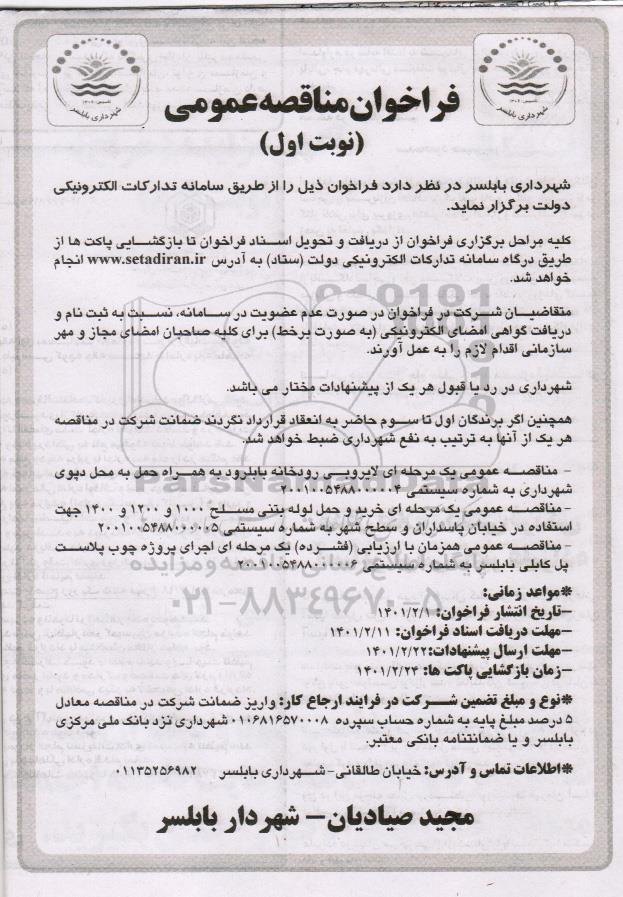 شهرداری بابلسر
شهرداری بابلسر
فراخوان مناقصه عمومی
(نوبت اول)
شهرداری بابلسر در نظر دارد فراخوان ذیل را از طریق سامانه تدارکات الکترونیکی
دولت برگزار نماید.
کلیه مراحل برگزاری فراخوان از دریافت و تحویل اسناد فراخوان تا بازگشایی پاکت ها از
طریق درگاه سامانه تدارکات الکترونیکی دولت (ستاد) به آدرس www.setadiran.ir انجام
خواهد شد.
متقاضیان شرکت در فراخوان در صورت عدم عضویت در سامانه، نسبت به ثبت نام و
دریافت گواهی امضای الکترونیکی (به صورت برخط) برای کلیه صاحبان امضای مجاز و مهر
سازمانی اقدام لازم را به عمل آورند.
شهرداری در رد یا قبول هر یک از پیشنهادات مختار می باشد.
همچنین اگر برندگان اول تا سوم حاضر به انعقاد قرارداد نگردند ضمانت شرکت در مناقصه
هر یک از آنها به ترتیب به نفع شهرداری ضبط خواهد شد.
- مناقصه عمومی یک مرحله ای لایروبی رودخانه بابلرود به همراه حمل به محل دپوی
شهرداری به شماره سیستمی ۲۰۰۱۰۰۵۴۸۸۰۰۰۰۰۴
- مناقصه عمومی یک مرحله ای خرید و حمل لوله بتنی مسلح ۱۰۰۰ و ۱۲۰۰ و ۱۴۰۰ جهت
استفاده در خیابان پاسداران و سطح شهر به شماره سیستمی ۲۰۰۱۰۰۵۴۸۸۰۰۰۰۰۵
- مناقصه عمومی همزمان با ارزیابی (فشرده) یک مرحله ای اجرای پروژه چوب پلاست
پل کابلی بابلسر به شماره سیستمی ۲۰۰۱۰۰۵۴۸۸۰۰۰۰۰۶
*مواعد زمانی:
-تاریخ انتشار فراخوان: ۱۴۰۱/۲/۱
-مهلت دریافت اسناد فراخوان: ۱۴۰۱/۲/۱۱
-مهلت ارسال پیشنهادات:۱۴۰۱/۲/۲۲
-زمان بازگشایی پاکت ها: ۱۴۰۱/۲/۲۴
*نوع و مبلغ تضمین شرکت در فرایند ارجاع کار: واریز ضمانت شرکت در مناقصه معادل
۵ درصد مبلغ پایه به شماره حساب سپرده ۰۱۰۶۸۱۶۵۷۰۰۰۸ شهرداری نزد بانک ملی مرکزی
بابلسر و یا ضمانتنامه بانکی معتبر.
*اطلاعات تماس و آدرس: خیابان طالقانی- شهرداری بابلسر ۰۱۱۳۵۲۵۶۹۸۲
مجید صیادیان- شهردار بابلسر
ParsNamadData
۰۲۱-۸۸۳۴۹۶۷۰-۵